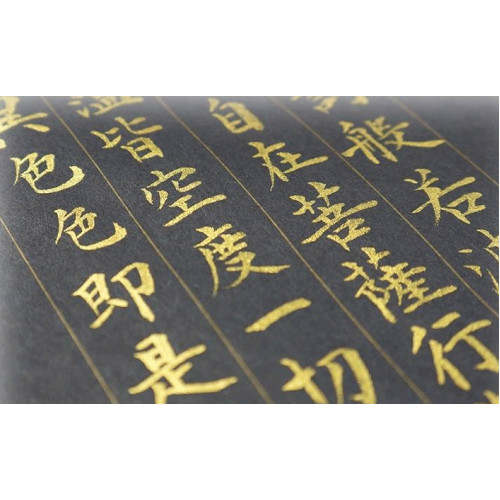 般若波
自在菩薩行
皆空度一切
異色色即是